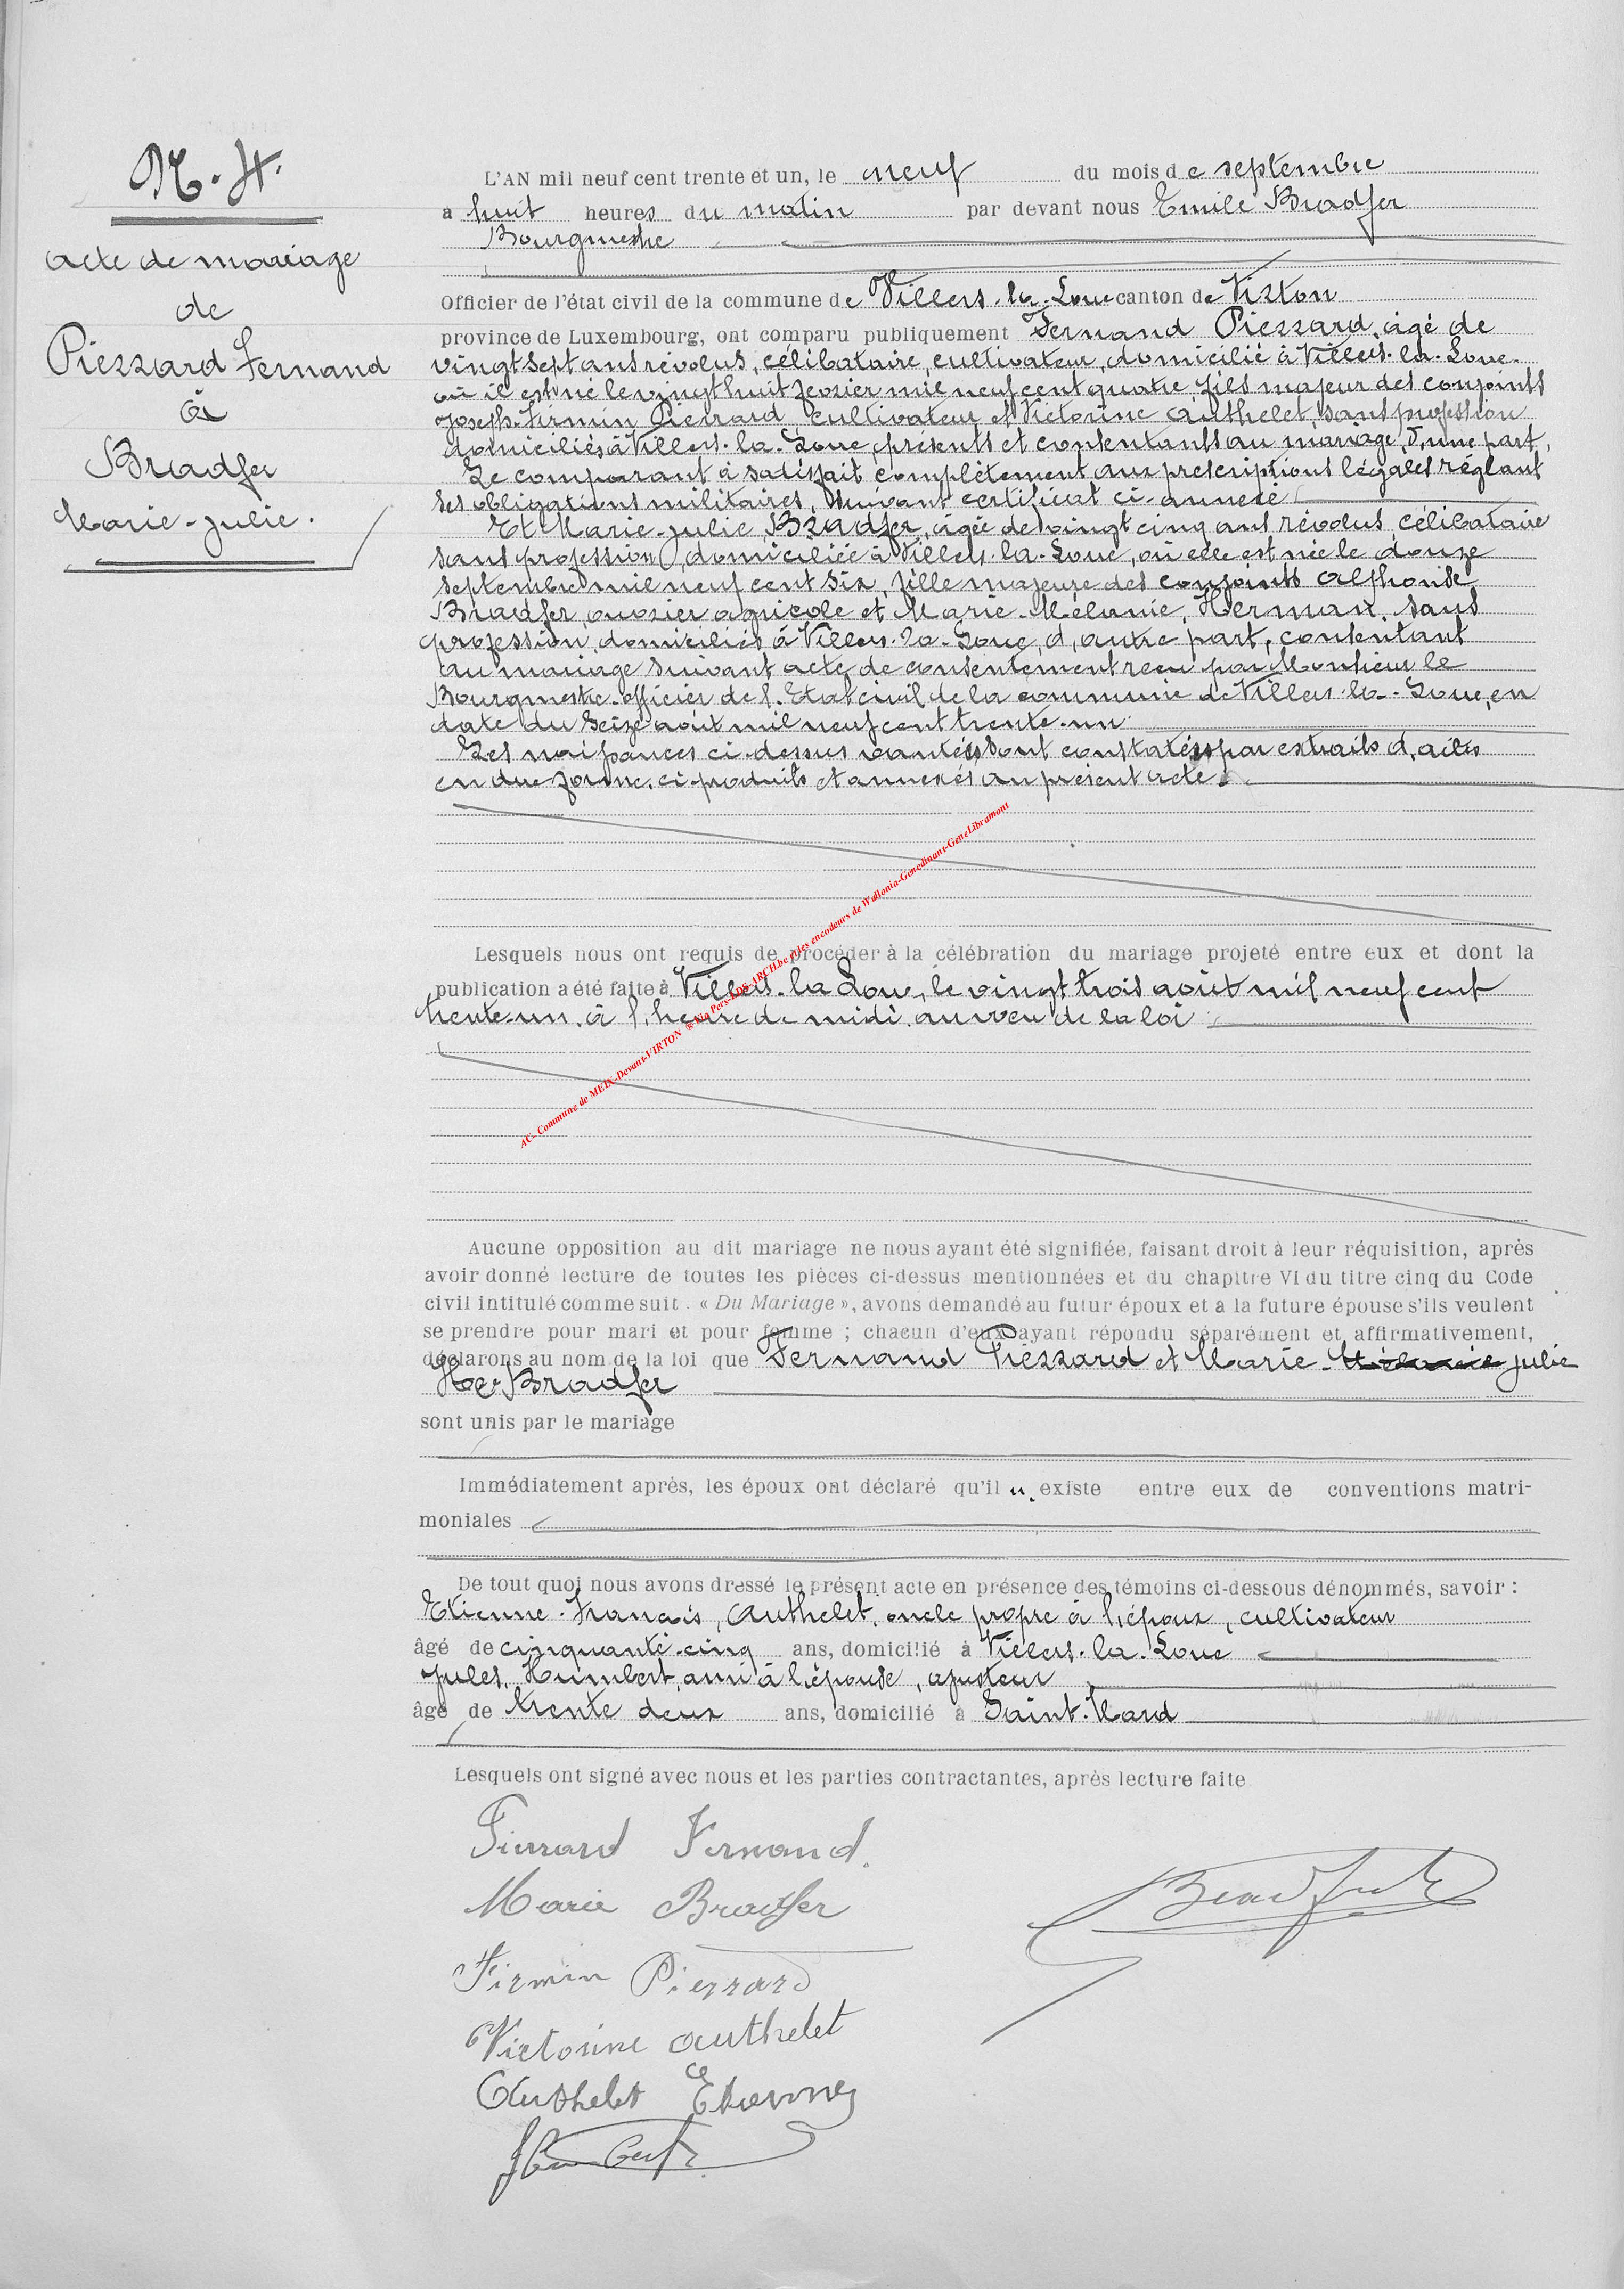 N. 4.
Acte de mariage
de
Pierrard Fernand
à
Bradfer
Marie-Julie.
L'AN mil neuf cent trente et un, le neuf du mois de septembre
à huit heures du matin par devant nous Emile Bradfer
Bourgmestre
Officier de l'état civil de la commune de Villers-la-Loue canton de Virton
province de Luxembourg, ont comparu publiquement Fernand Pierrard, âgé de
vingt sept ans révolus, célibataire, cultivateur, domicilié à Villers-la-Loue-
où il est né le vingt huit février mil neuf cent quatre fils majeur des conjoints
Joseph-Firmin Pierrard, cultivateur et Victorine Authelet, sans profession
domiciliés à Villers-la-Loue, présents et consentants au mariage, d'une part,
Le comparant à satisfait complètement aux prescriptions légales réglant
ses obligations militaires, suivant certificat ci-annexé
Et Marie-Julie Bradfer, âgée de vingt cinq ans révolus célibataire
sans profession, domiciliée à Villers-la-Loue, où elle est née le douze
septembre mil neuf cent six, fille majeure des conjoints Alphonse
Bradfer, ouvrier agricole et Marie-Mélanie, Herman, sans
profession, domiciliés à Villers-la-Loue, d'autre part, consentant
au mariage suivant acte de consentement recu par Monsieur le
Bourgmestre-officier de l'Etat civil de la commune de Villers-la-Loue, en
date du seize août mil neuf cent trente-un.
Les naissances ci-dessus vantées sont constatées par extraits d'actes
en due forme, ci-produits et annexés au présent acte.
Lesquels nous ont requis de procéder à la célébration du mariage projeté entre eux et dont la
publication a été faite à Villers-la-Loue, le vingt trois août mil neuf cent
trente-un, à l'heure de midi, au vœu de la loi
AC- Commune de MEIX-Devant-VIRTON ® via Pers-LDS-ARCH.be & les encodeurs de Wallonia-Genedinant-GeneLibramont
Aucune opposition au dit mariage ne nous ayant été signifiée, faisant droit à leur réquisition, après
avoir donné lecture de toutes les pièces ci-dessus mentionnées et du chapitre VI du titre cinq du Code
civil intitulé comme suit : « Du Mariage », avons demandé au futur époux et à la future épouse s'ils veulent
se prendre pour mari et pour femme ; chacun d'eux ayant répondu séparément et affirmativement,
déclarons au nom de la loi que Fernand Pierrard et Marie Mélanie Julie
Her Bradfer
sont unis par le mariage
Immédiatement après, les époux ont déclaré qu'il n'existe entre eux de conventions matri-
moniales
De tout quoi nous avons dressé le présent acte en présence des témoins ci-dessous dénommés, savoir :
Etienne-François, Authelet, oncle propre à l'époux, cultivateur
âgé de cinquante-cinq ans, domicilié à Villers-la-Loue
Jules, Humbert, ami à l'épouse, ajusteur
âgé de trente deux ans, domicilié à Saint-Mard
Lesquels ont signé avec nous et les parties contractantes, après lecture faite
Pierrard Fernand.
Marie Bradfer
Bradfer
Firmin Pierrard
Victorine Authelet
Authelet Etienne
JHumbert